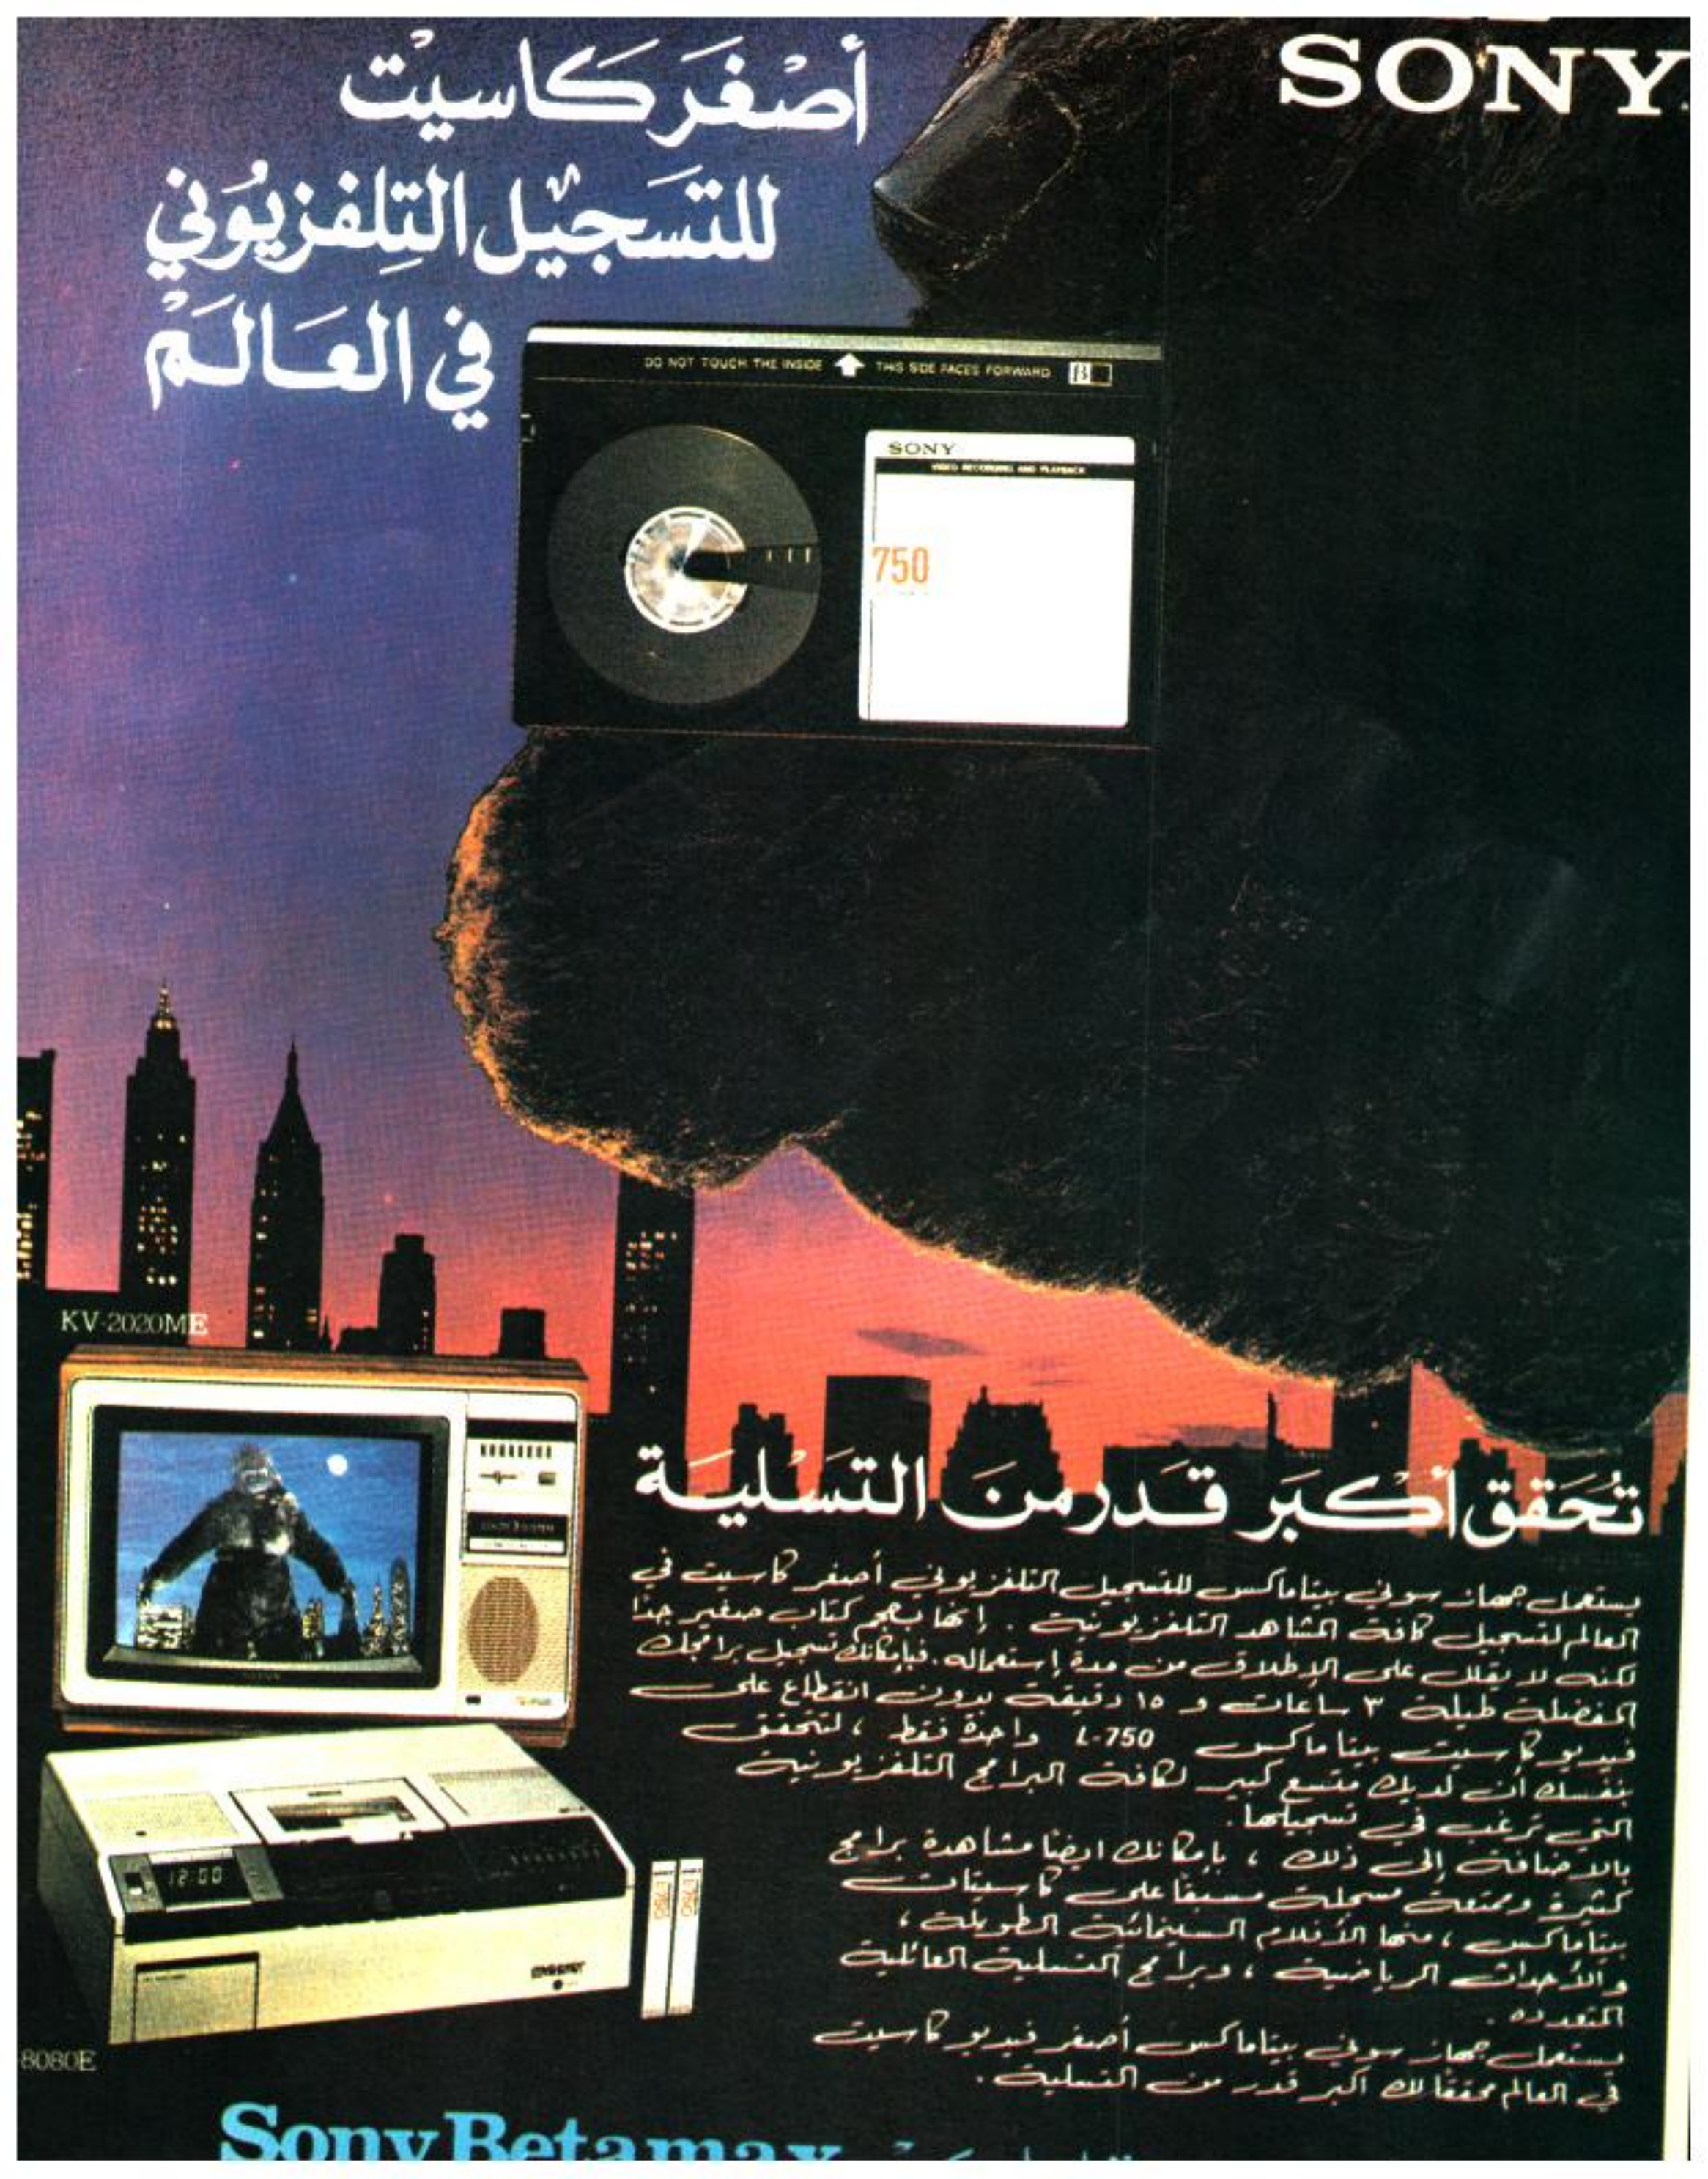 SONY
أصْغَر كاسيْت
للتسَجيْل التِلفزيُوني
في العَالَمْ
DO NOT TOUCH THE INSIDE THIS SIDE FACES FORWARD β
SONY
VIDEO RECORDING AND PLAYBACK
750
KV-2020ME
تُحَقق أكْبَر قَدر منَ التَسْليَة
يستعمل جهاز سوني بيتاماكس للتسجيل التلفزيوني أصغر كاسيت في
العالم لتسجيل كافة المشاهد التلفزيونية . إنها بحجم كتاب صغير جدًا
لكنه لا يقلل على الإطلاق من مدة إستعماله . فبإمكانك تسجيل برامجك
المفضلة طيلة ٣ ساعات و ١٥ دقيقة بدون انقطاع على
فيديو كاسيت بيتاماكس L-750 واحدة فقط ، لتتحقق
بنفسك أن لديك متسع كبير لكافة البرامج التلفزيونية
التي ترغب في تسجيلها .
بالاضافة إلى ذلك ، بإمكانك ايضًا مشاهدة برامج
كثيرة وممتعة مسجلة مسبقًا على كاسيتات
بيتاماكس ، منها الأفلام السينمائية الطويلة ،
والأحداث الرياضية ، وبرامج التسلية العائلية
المتعدده .
يستعمل جهاز سوني بيتاماكس أصغر فيديو كاسيت
في العالم محققًا لك اكبر قدر من التسلية .
12:00
L-750
L-750
8080E
Sony Betamax